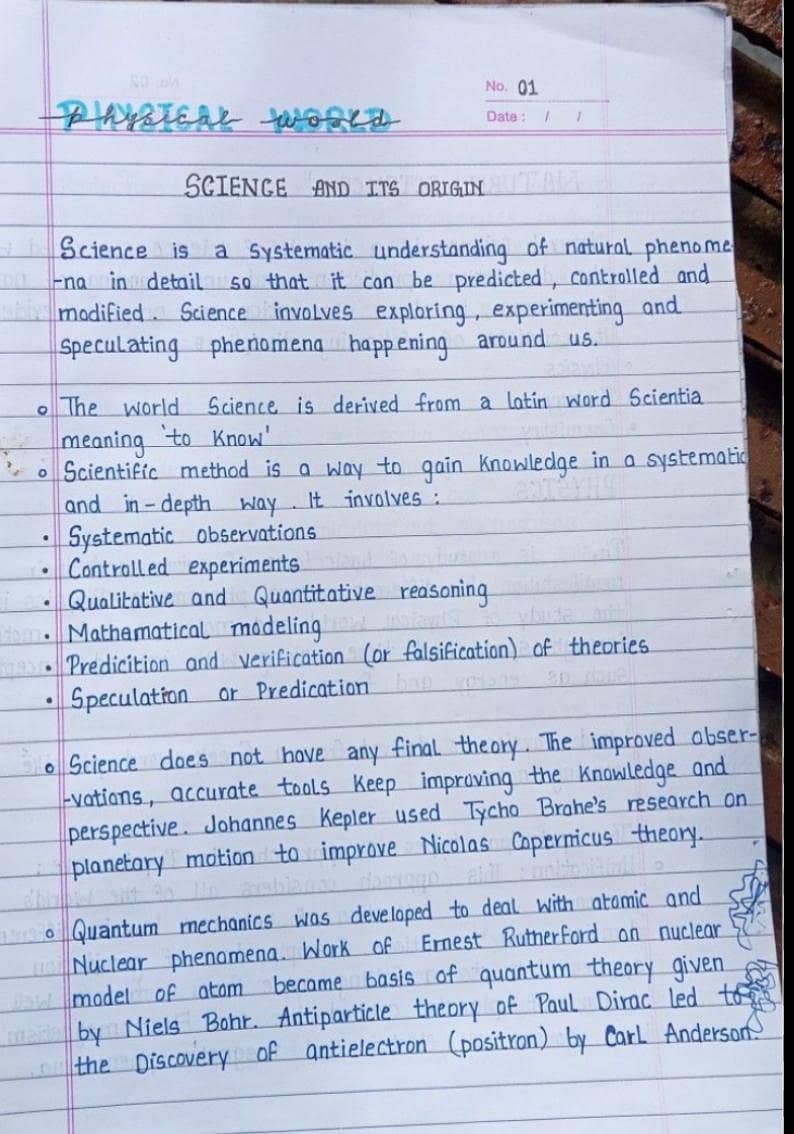 No. 01
PHYSICAL WORLD
physical world
Date : / /
SCIENCE AND ITS ORIGIN
Science is a systematic understanding of natural phenome-
-na in detail so that it can be predicted, controlled and
modified. Science involves exploring, experimenting and
speculating phenomena happening around us.
The world Science is derived from a latin word Scientia
meaning 'to Know'
Scientific method is a way to gain Knowledge in a systematic
and in-depth way. It involves :
• Systematic observations
• Controlled experiments
• Qualitative and Quantitative reasoning
• Mathamatical modeling
• Predicition and verification (or falsification) of theories
• Speculation or Predication
Science does not have any final theory. The improved obser-
-vations, accurate tools Keep improving the Knowledge and
perspective. Johannes Kepler used Tycho Brahe's research on
planetary motion to improve Nicolas Copernicus theory.
Quantum mechanics was developed to deal with atomic and
Nuclear phenomena. Work of Ernest Rutherford on nuclear
model of atom became basis of quantum theory given
by Niels Bohr. Antiparticle theory of Paul Dirac led to
the Discovery of antielectron (positron) by Carl Anderson.